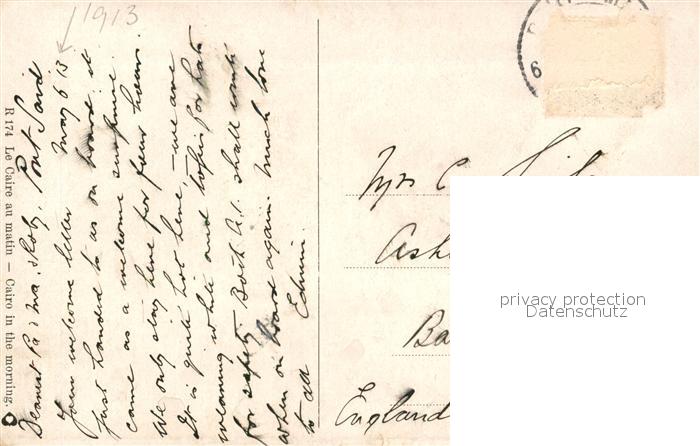 1913
Port Said
May 6 13
Dearest Pa & Ma,
Your welcome letter
just handed to us on board it
came as a welcome surprise.
We only stay here for few hours.
It is quite hot here, – we are
wearing white and topis for hats
for safety – Both A.1. shall write
when on board again. Much love
to all Edwin.
R 174 Le Caire au matin – Cairo in the morning.
6
Mrs C.
Ash
Ba
England
privacy protection
Datenschutz